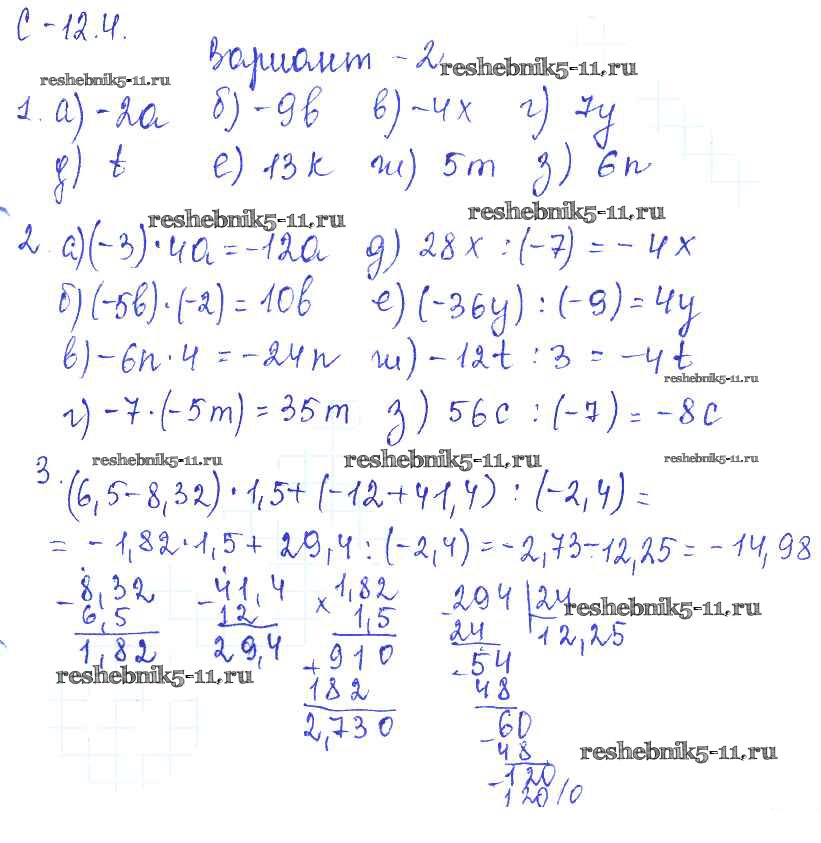 С-12.4.
Вариант - 2
reshebnik5-11.ru
reshebnik5-11.ru
1. а) -2a б) -9b в) -4x г) 7y
д) t е) 13k ж) 5m з) 6n
reshebnik5-11.ru
reshebnik5-11.ru
2. а) (-3)·4a = -12a д) 28x : (-7) = -4x
б) (-5b)·(-2) = 10b е) (-36y) : (-9) = 4y
в) -6n·4 = -24n ж) -12t : 3 = -4t
reshebnik5-11.ru
г) -7·(-5m) = 35m з) 56c : (-7) = -8c
reshebnik5-11.ru
reshebnik5-11.ru
reshebnik5-11.ru
3. (6,5-8,32)·1,5+(-12+41,4) : (-2,4) =
= -1,82·1,5+29,4 : (-2,4) = -2,73-12,25 = -14,98
-8,32 -41,4 ×1,82 -294 |24
6,5 12 1,5 24 12,25
reshebnik5-11.ru
1,82 29,4 +910 -54
reshebnik5-11.ru
182 48
2,730 -60
48
reshebnik5-11.ru
-120
120/0